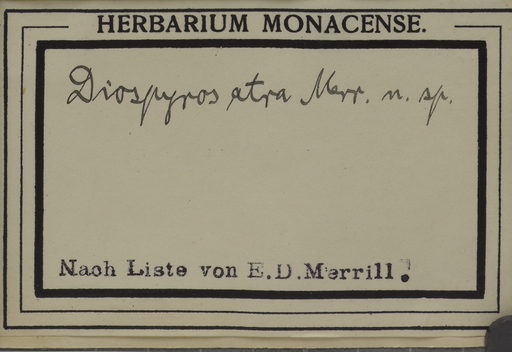 HERBARIUM MONACENSE.
Diospyros atra Merr. n. sp.
Nach Liste von E.D.Merrill!